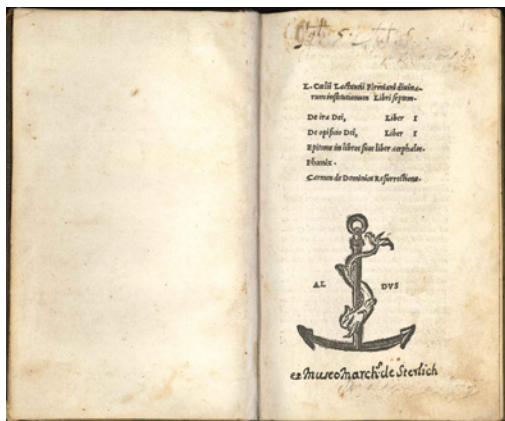 L. Cœlii Lactantii Firmiani diuina-
rum institutionum Libri septem.
De ira Dei, Liber I
De opificio Dei, Liber I
Epitome in libros suos liber acephalos.
Phœnix.
Carmen de Dominica Resurrectione.
AL DVS
ex Museo March.s de Sterlich